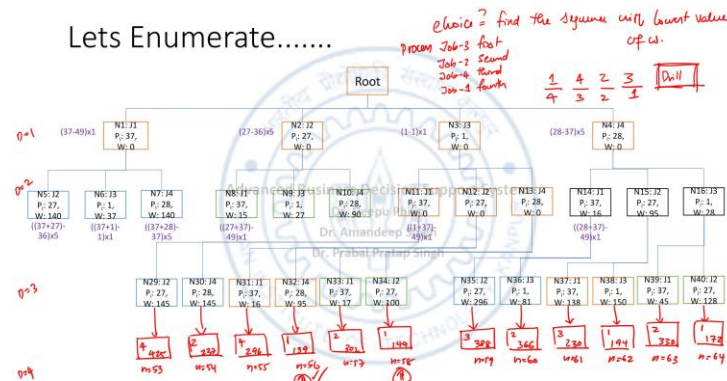 Lets Enumerate.......
choice? find the sequence with lowest value
of w.
Process Job-3 first
Job-2 second
Job-4 third
Job-1 fourth
1 4 2 3
4 3 2 1
Drill
Root
D=1
(37-49)x1
N1: J1
Pⱼ: 37,
W: 0
(27-36)x5
N2: J2
Pⱼ: 27,
W: 0
(1-1)x1
N3: J3
Pⱼ: 1,
W: 0
(28-37)x5
N4: J4
Pⱼ: 28,
W: 0
D=2
N5: J2
Pⱼ: 27,
W: 140
N6: J3
Pⱼ: 1,
W: 37
N7: J4
Pⱼ: 28,
W: 140
N8: J1
Pⱼ: 37,
W: 15
N9: J3
Pⱼ: 1,
W: 27
N10: J4
Pⱼ: 28,
W: 90
N11: J1
Pⱼ: 37,
W: 0
N12: J2
Pⱼ: 27,
W: 0
N13: J4
Pⱼ: 28,
W: 0
N14: J1
Pⱼ: 37,
W: 16
N15: J2
Pⱼ: 27,
W: 95
N16: J3
Pⱼ: 1,
W: 28
((37+27)-
36)x5
((37+1)-
1)x1
((37+28)-
37)x5
((27+37)-
49)x1
((1+37)-
49)x1
((28+37)-
49)x1
Dr. Amandeep
Dr. Prabal Pratap Singh
D=3
N29: J2
Pⱼ: 27,
W: 145
N30: J4
Pⱼ: 28,
W: 145
N31: J1
Pⱼ: 37,
W: 16
N32: J4
Pⱼ: 28,
W: 95
N33: J1
Pⱼ: 37,
W: 17
N34: J2
Pⱼ: 27,
W: 100
N35: J2
Pⱼ: 27,
W: 296
N36: J3
Pⱼ: 1,
W: 81
N37: J1
Pⱼ: 37,
W: 138
N38: J3
Pⱼ: 1,
W: 150
N39: J1
Pⱼ: 37,
W: 45
N40: J2
Pⱼ: 27,
W: 128
D=4
4 425
2 237
4 296
1 139
2 202
1 144
3 388
2 366
3 230
1 194
2 330
1 172
n=53
n=54
n=55
n=56
n=57
n=58
n=59
n=60
n=61
n=62
n=63
n=64